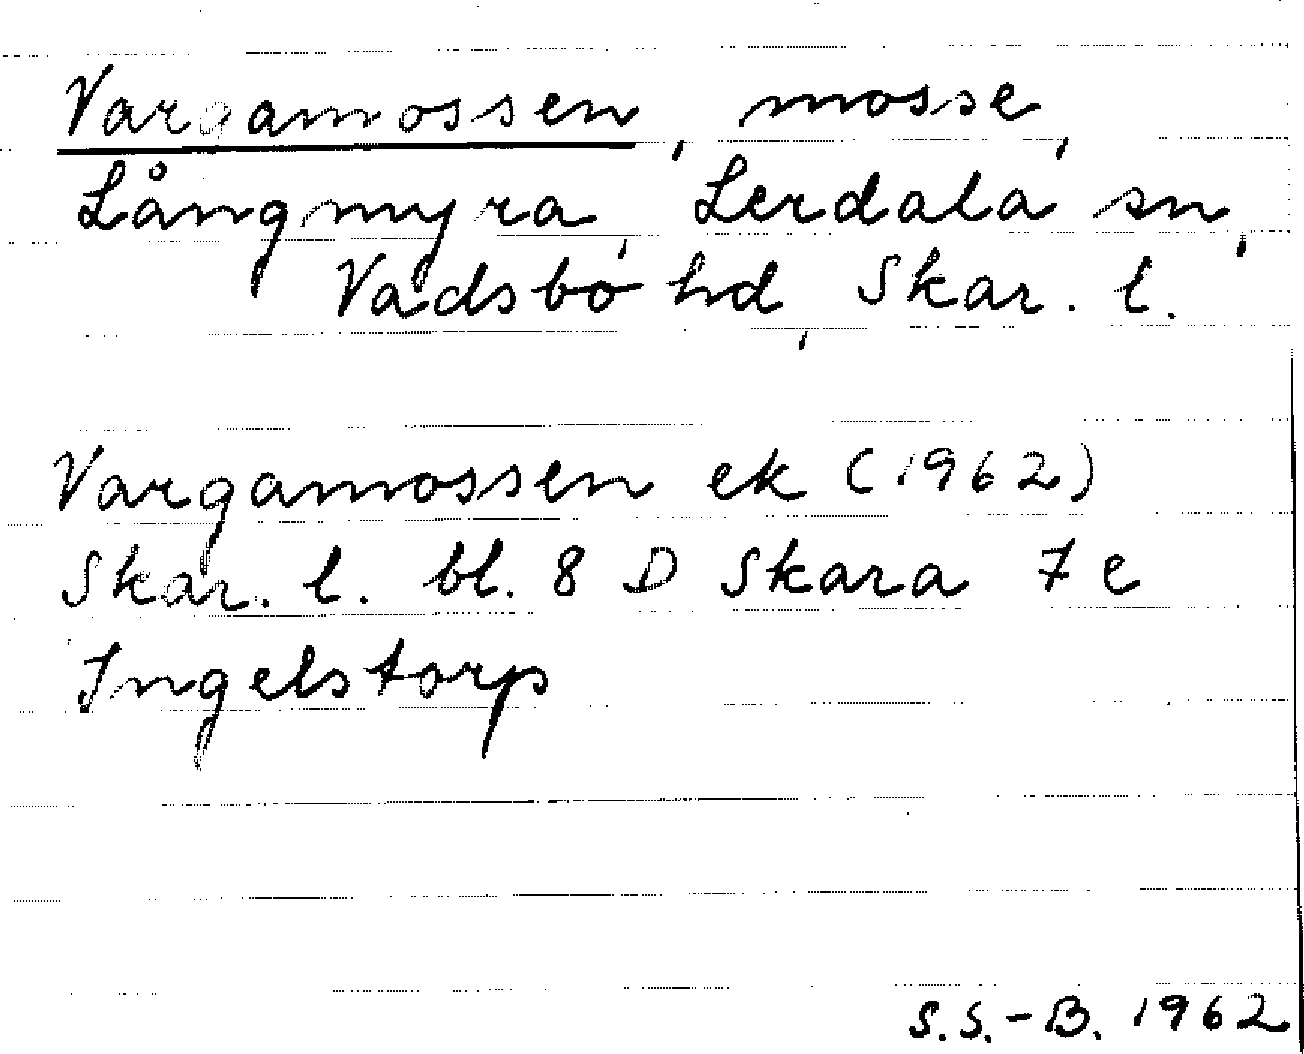 Vargamossen, mosse,
Långmyra, Lerdala sn,
Vadsbo hd, Skar. l.
Vargamossen ek (1962)
Skar. l. bl. 8 D Skara 7 e
Ingelstorp
S.S.-B. 1962